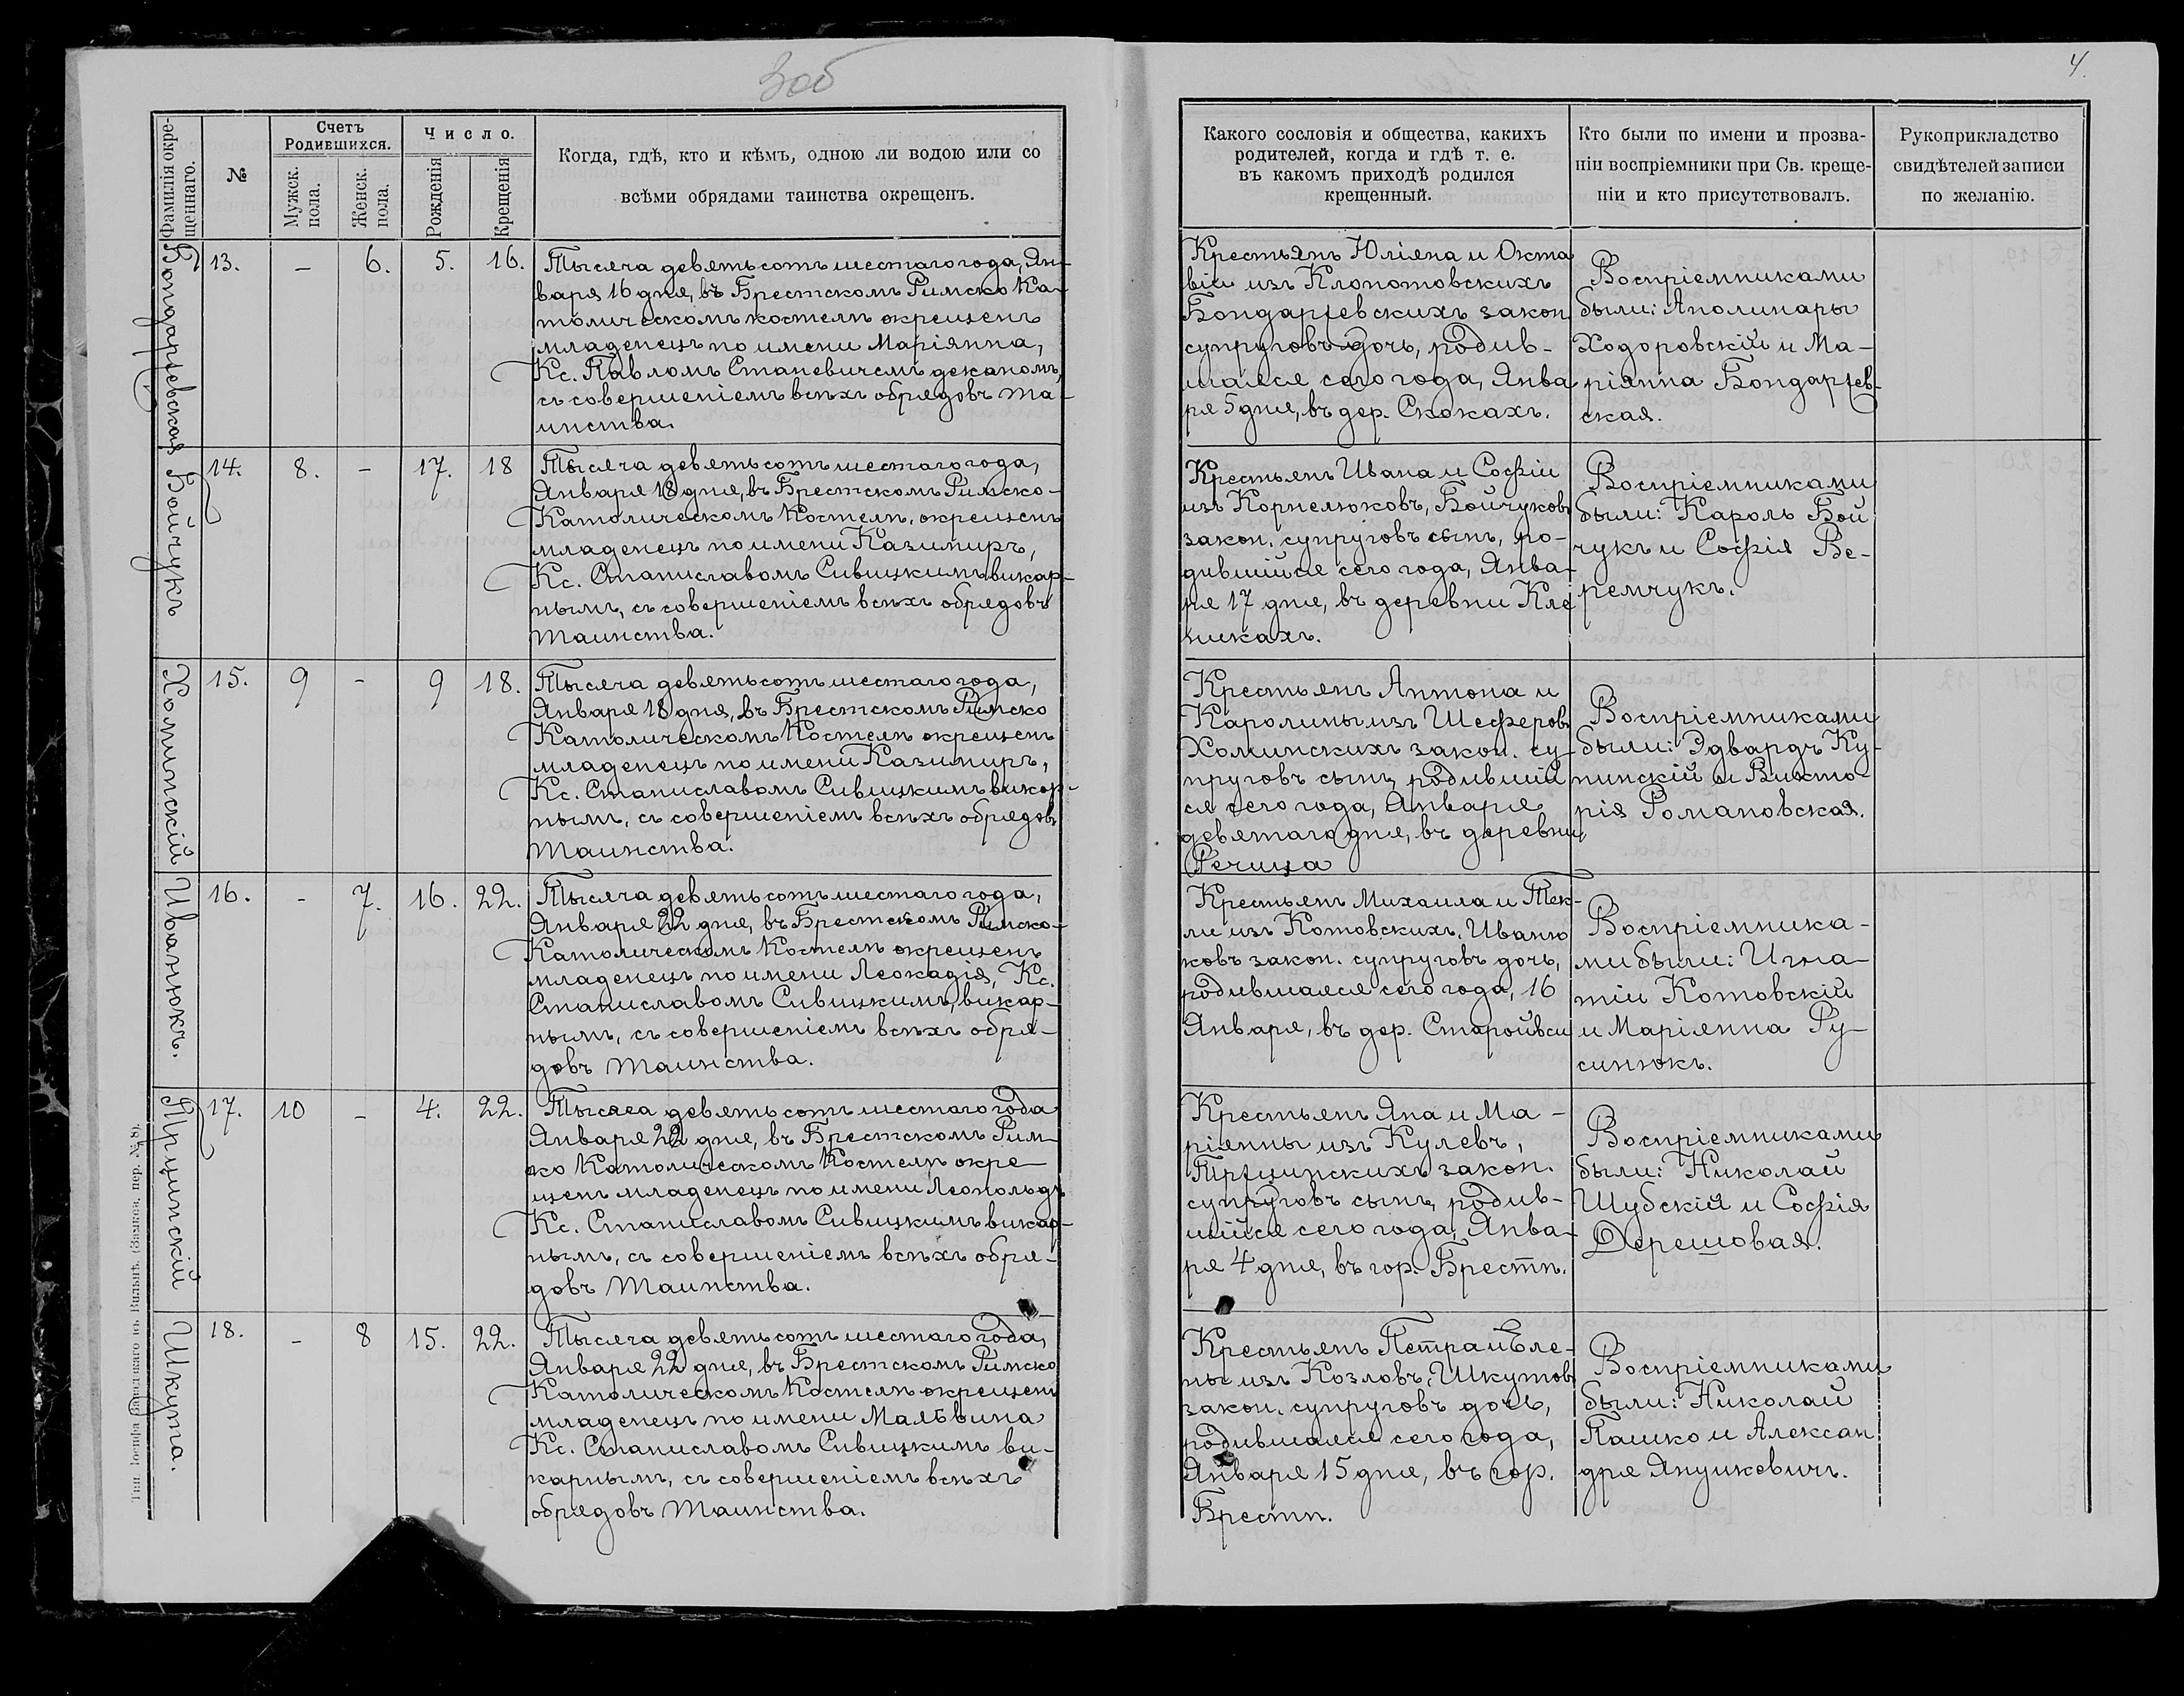 3об
4.
Фамилія окре-
щеннаго.
№
Счетъ
Родившихся.
Мужск.
пола.
Женск.
пола.
Число.
Рожденія
Крещенія
Когда, гдѣ, кто и кѣмъ, одною ли водою или со
всѣми обрядами таинства окрещенъ.
Какого сословія и общества, какихъ
родителей, когда и гдѣ т. е.
въ какомъ приходѣ родился
крещенный.
Кто были по имени и прозва-
ніи воспріемники при Св. креще-
ніи и кто присутствовалъ.
Рукоприкладство
свидѣтелей записи
по желанію.
Бондаржевская
13.
–
6.
5.
16.
Тысяча девятьсотъ шестаго года, Ян-
варя 16 дня, въ Брестскомъ Римско Ка-
толическомъ костелѣ окрещенъ
младенецъ по имени Маріянна,
Кс. Павломъ Станевичемъ деканомъ,
съ совершеніемъ всѣхъ обрядовъ та-
инства.
Крестьянъ Юліяна и Окта
віи изъ Клопотовскихъ
Бондаржевскихъ закон
супруговъ дочь, родив-
шаяся сего года, Янва
ря 5 дня, въ дер. Скокахъ.
Воспріемниками
были: Аполинары
Ходоровскій и Ма-
ріянна Бондаржев-
ская.
Бойчукъ
14.
8.
–
17.
18
Тысяча девятьсотъ шестаго года,
Января 18 дня, въ Брестскомъ Римско-
Католическомъ Костелѣ, окрещенъ
младенецъ по имени Казимиръ,
Кс. Станиславомъ Сивицкимъ викар-
нымъ, съ совершеніемъ всѣхъ обрядовъ
Таинства.
Крестьянъ Ивана и Софіи
изъ Корнелюковъ, Бойчуковъ
закон. супруговъ сынъ, ро-
дившійся сего года, Янва-
ря 17 дня, въ деревни Кле
никахъ.
Воспріемниками
были: Кароль Бой
чукъ и Софія Ве-
ремчукъ.
Хоминскій
15.
9
-
9
18.
Тысяча девятьсотъ шестаго года,
Января 18 дня, въ Брестскомъ Римско
Католическомъ Костелѣ окрещенъ
младенецъ по имени Казимиръ,
Кс. Станиславомъ Сивицкимъ викар-
нымъ, съ совершеніемъ всѣхъ обрядовъ
Таинства.
Крестьянъ Антона и
Каролины изъ Шеферовъ
Хоминскихъ закон. су-
пруговъ сынъ, родившій
ся сего года, Января
девятаго дня, въ деревни
Речица
Воспріемниками
были: Эдвардъ Ку-
пинскій и Викто-
рія Романовская.
Иванюкъ.
16.
-
7.
16.
22.
Тысяча девятьсотъ шестаго года,
Января 22 дня, въ Брестскомъ Римско-
Католическомъ Костелѣ окрещенъ
младенецъ по имени Леокадія, Кс.
Станиславомъ Сивицкимъ, викар-
нымъ, съ совершеніемъ всѣхъ обря-
довъ Таинства.
Крестьянъ Михаила и Тек-
ли изъ Котовскихъ, Иваню
ковъ закон. супруговъ дочь,
родившаяся сего года, 16
Января, въ дер. Старойвси
Воспріемника-
ми были: Игна-
тіи Котовскій
и Маріянна Ру-
синюкъ.
Тржцинскій
17.
10
–
4.
22.
Тысяча девятьсотъ шестаго года
Января 22 дня, въ Брестскомъ Рим-
ко Католическомъ Костелѣ окре
щенъ младенецъ по имени Леопольдъ
Кс. Станиславомъ Сивицкимъ викар-
нымъ, съ совершеніемъ всѣхъ обря-
довъ Таинства.
Крестьянъ Яна и Ма-
ріянны изъ Кулевъ,
Тржцинскихъ закон.
супруговъ сынъ, родив-
шійся сего года, Янва-
ря 4 дня, въ гор. Брестѣ.
Воспріемниками
были: Николай
Шубскій и Софія
Дерешовая.
Шкута.
18.
-
8
15.
22.
Тысяча девятьсотъ шестаго года,
Января 22 дня, въ Брестскомъ Римско
Католическомъ Костелѣ окрещенъ
младенецъ по имени Мальвина
Кс. Станиславомъ Сивицкимъ ви-
карнымъ, съ совершеніемъ всѣхъ
обрядовъ Таинства.
Крестьянъ Петра и Еле-
ны изъ Козловъ, Шкутовъ
закон. супруговъ дочь,
родившаяся сего года,
Января 15 дня, въ гор.
Брестѣ.
Воспріемниками
были: Николай
Пашко и Алексан
дря Янушкевичъ.
Тип. Іосифа Завадскаго въ Вильнѣ. (Замков. пер. № 8).